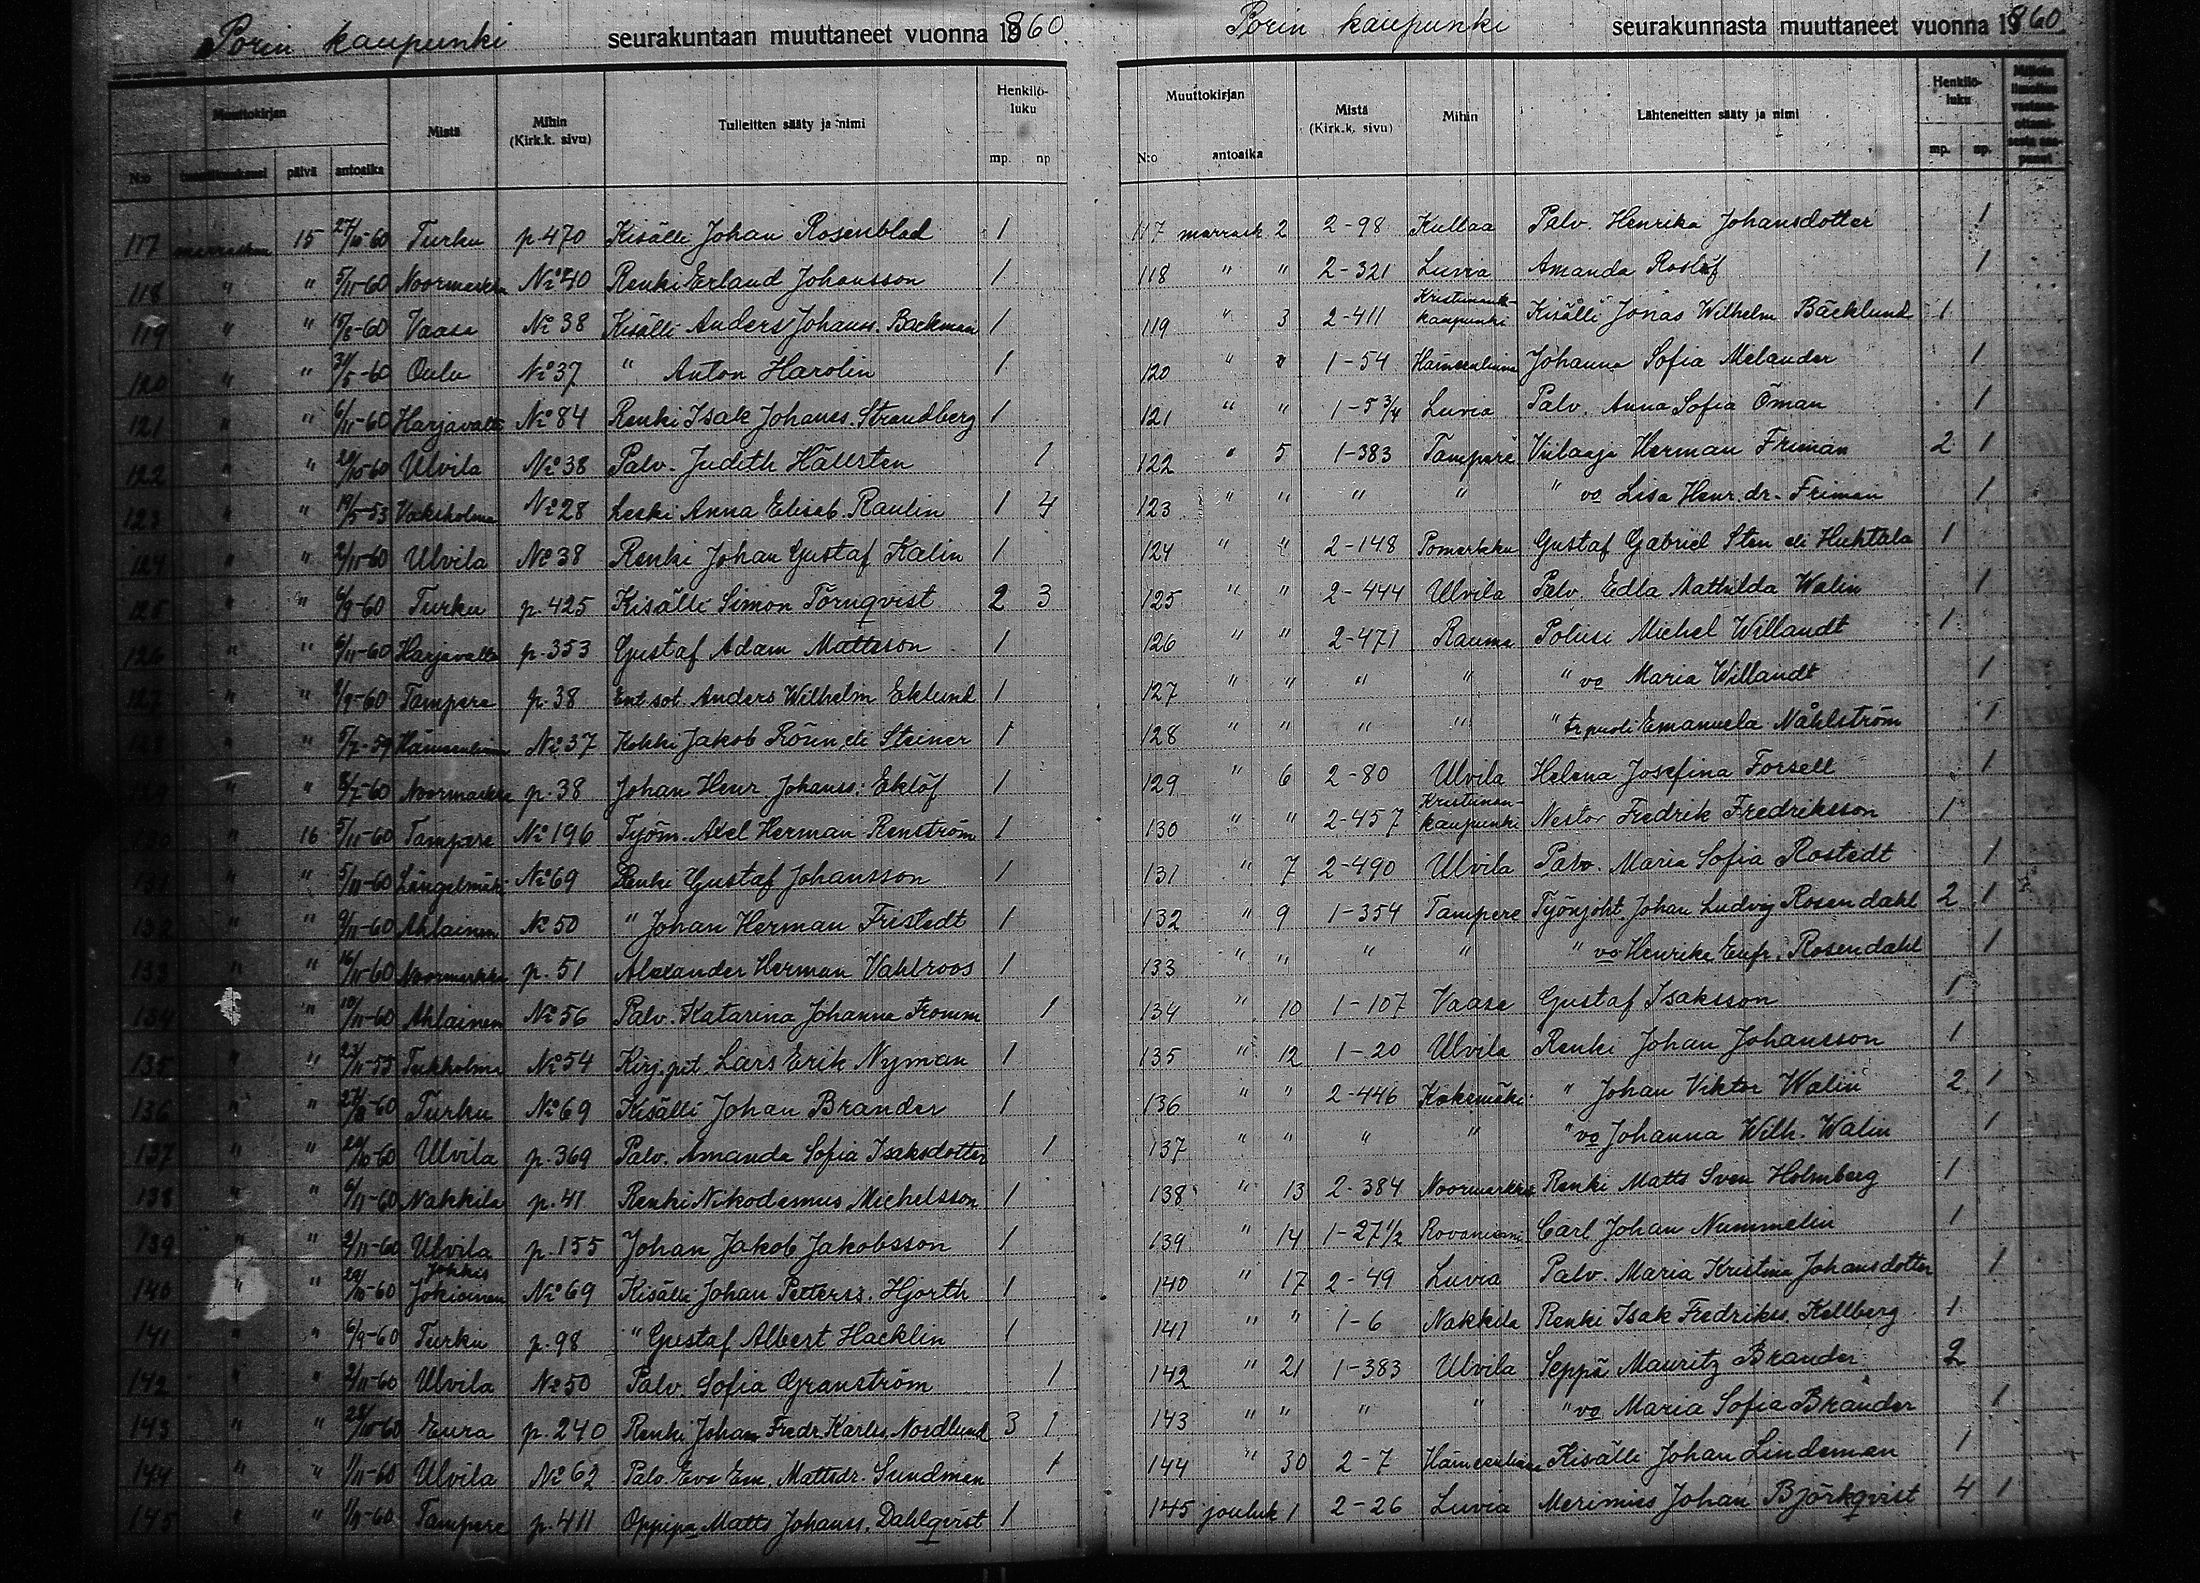 Porin kaupunki seurakuntaan muuttaneet vuonna 1860
Muuttokirjan Mistä Mihin (Kirk.k. sivu) Tulleitten sääty ja nimi Henkilö-luku
N:o päivä antoaika mp. np
117 marraskuu 15 27/10-60 Turku p.470 Kisälli Johan Rosenblad 1
118 " " 5/11-60 Noormarkku No 40 Renki Erland Johansson 1
119 " " 15/8-60 Vaasa No 38 Kisälli Anders Johanss. Backman 1
120 " " 31/5-60 Oulu No 37 " Anton Harolin 1
121 " " 6/11-60 Harjavalta No 84 Renki Isak Johanss. Strandberg 1
122 " " 29/10-60 Ulvila No 38 Palv. Judith Hällsten 1
123 " " 19/5-53 Vaksholma No 28 Leski Anna Elisab. Raulin 1 4
124 " " 2/11-60 Ulvila No 38 Renki Johan Gustaf Kalin 1
125 " " 6/9-60 Turku p.425 Kisälli Simon Törnqvist 2 3
126 " " 6/11-60 Harjavalta p.353 Gustaf Adam Mattsson 1
127 " " /9-60 Tampere p.38 Ent.sot. Anders Wilhelm Eklund 1
" 5/7-59 Hämeenlinna No 37 Kokki Jakob Rönn eli Steiner 1
" " 8/7-60 Noormarkku p.38 Johan Henr. Johanss. Eklöf 1
" 16 5/11-60 Tampere No 196 Työm. Axel Herman Renström 1
" " 5/11-60 Längelmäki No 69 Renki Gustaf Johansson 1
132 " " 9/11-60 Ahlainen No 50 " Johan Herman Fristedt 1
133 " " 16/11-60 Noormarkku p.51 Alexander Herman Vahlroos 1
134 " 10/11-60 Ahlainen No 56 Palv. Katarina Johanna Fromm 1
135 " " 23/11-55 Tukholma No 54 Kirj.pit. Lars Erik Nyman 1
136 " " 27/8-60 Turku No 69 Kisälli Johan Brander 1
137 " " 29/10-60 Ulvila p.369 Palv. Amanda Sofia Isaksdotter 1
138 " " 6/11-60 Nakkila p.41 Renki Nikodemus Michelsson 1
139 " 2/11-60 Ulvila p.155 Johan Jakob Jakobsson 1
140 " " 29/10-60 Jokkis Jokioinen No 69 Kisälli Johan Petterss. Hjorth 1
141 " " 6/9-60 Turku p.98 " Gustaf Albert Hacklin 1
142 " " 2/11-60 Ulvila No 50 Palv. Sofia Granström 1
143 " " 28/10-60 Eura p.240 Renki Johan Fredr. Karlss. Nordlund 3 1
144 " " 1/11-60 Ulvila No 62 Palv. Eva Em. Mattsdr. Sundman 1
145 " " 1/11-60 Tampere p.411 Oppipo. Matts Johanss. Dahlqvist 1
Porin kaupunki seurakunnasta muuttaneet vuonna 1860
Muuttokirjan Mistä (Kirk.k. sivu) Mihin Lähteneitten sääty ja nimi Henkilö-luku
N:o antoaika mp. np.
117 marrask 2 2-98 Kullaa Palv. Henrika Johansdotter 1
118 " " 2-321 Luvia Amanda Roslöf 1
119 " 3 2-411 Kristiinankaupunki Kisälli Jonas Wilhelm Bäcklund 1
120 " " 1-54 Hämeenlinna Johanna Sofia Melander 1
121 " " 1-5 3/4 Luvia Palv. Anna Sofia Öman 1
122 " 5 1-383 Tampere Viilaaja Herman Friman 2 1
123 " " " " " vo Lisa Henr.dr. Friman 1
124 " " 2-148 Pomarkku Gustaf Gabriel Sten eli Huhtala 1
125 " " 2-444 Ulvila Palv. Edla Mathilda Walin 1
126 " " 2-471 Rauma Poliisi Michel Willandt 1
127 " " " " " vo Maria Willandt 1
128 " " " " " tr puoli Emanuela Nåhlström 1
129 " 6 2-80 Ulvila Helena Josefina Forsell 1
130 " " 2-457 Kristiinankaupunki Nestor Fredrik Fredriksson 1
131 " 7 2-490 Ulvila Palv. Maria Sofia Rostedt 1
132 " 9 1-354 Tampere Työnjoht. Johan Ludvig Rosendahl 2 1
133 " " " " " vo Henrika Eufr. Rosendahl 1
134 " 10 1-107 Vaasa Gustaf Isaksson 1
135 " 12 1-20 Ulvila Renki Johan Johansson 1
136 " " 2-446 Kokemäki " Johan Viktor Walin 2 1
137 " " " " " vo Johanna Wilh. Walin 1
138 " 13 2-384 Noormarkku Renki Matts Sven Holmberg 1
139 " 14 1-27 1/2 Rovaniemi Carl Johan Nummelin 1
140 " 17 2-49 Luvia Palv. Maria Kristina Johansdotter 1
141 " " 1-6 Nakkila Renki Isak Fredrikss. Kellberg 1
142 " 21 1-383 Ulvila Seppä Mauritz Brander 2
143 " " " " " vo Maria Sofia Brander 1
144 " 30 2-7 Hämeenlinna Kisälli Johan Lindeman 1
145 jouluk 1 2-26 Luvia Merimies Johan Björkqvist 4 1